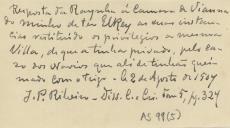 Resposta da Raynha á Camera de Vianna
do Minho de ter ElRey as suas instan-
cias restituido os privilegios a mesma
Villa, de que a tinha privado, pelo ca-
zo dos Navios que ali de tinhão quei-
mado com o trigo. - 6 2 Agosto de 1507
J. P. Ribeiro - Diss. C. e Cri. Tom 5, p. 324
AS 99(5)